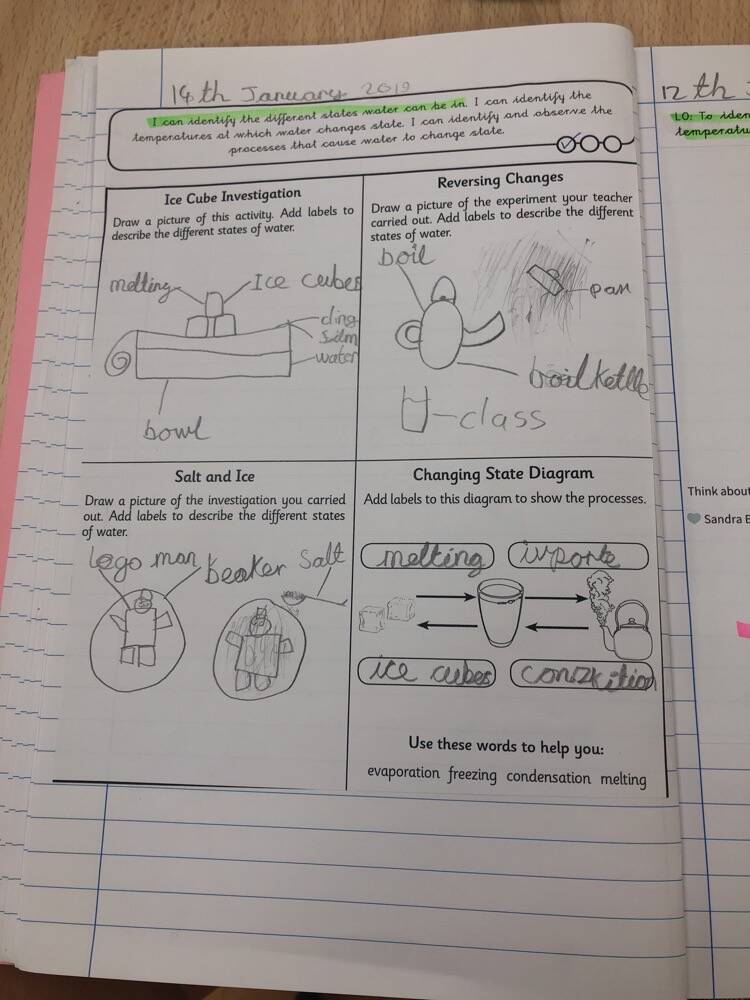 14th January 2019
I can identify the different states water can be in. I can identify the
temperatures at which water changes state. I can identify and observe the
processes that cause water to change state.
Ice Cube Investigation
Draw a picture of this activity. Add labels to
describe the different states of water.
melting
Ice cubes
cling
water
bowl
Reversing Changes
Draw a picture of the experiment your teacher
carried out. Add labels to describe the different
states of water.
boil
pan
ketlle
class
Salt and Ice
Draw a picture of the investigation you carried
out. Add labels to describe the different states
of water.
Lego man
beaker
Salt
Changing State Diagram
Add labels to this diagram to show the processes.
melting
ivporte
ice cubes
Use these words to help you:
evaporation freezing condensation melting
12th
LO: To iden
temperatu
Think about
Sandra B